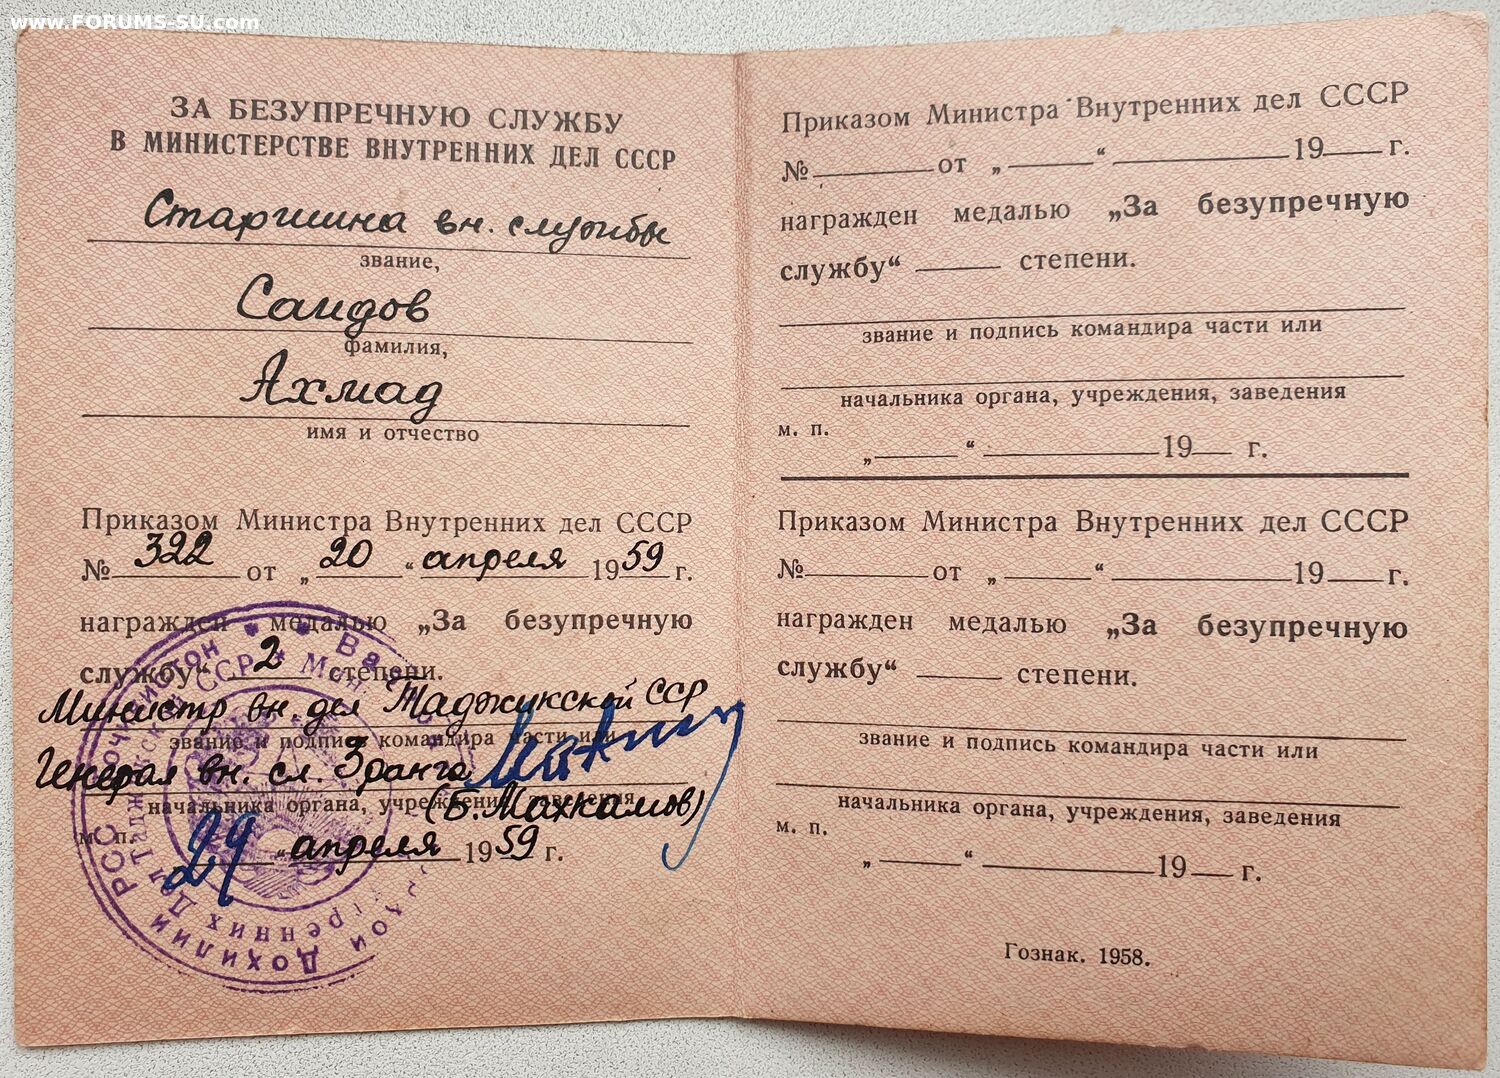 www.FORUMS-SU.com
ЗА БЕЗУПРЕЧНУЮ СЛУЖБУ
В МИНИСТЕРСТВЕ ВНУТРЕННИХ ДЕЛ СССР
Старшина вн. службы
звание,
Саидов
фамилия,
Ахмад
имя и отчество
Приказом Министра Внутренних дел СССР
№ 322 от „ 20 “ апреля 1959 г.
награжден медалью „За безупречную
службу“ 2 степени.
Министр вн. дел Таджикской ССР
звание и подпись командира части или
Генерал вн. сл. 3 ранга
начальника органа, учреждения, заведения
(Б. Махкамов)
м. п.
29 “ апреля 1959 г.
Приказом Министра Внутренних дел СССР
№ от „ “ 19 г.
награжден медалью „За безупречную
службу“ степени.
звание и подпись командира части или
начальника органа, учреждения, заведения
м. п.
„ “ 19 г.
Приказом Министра Внутренних дел СССР
№ от „ “ 19 г.
награжден медалью „За безупречную
службу“ степени.
звание и подпись командира части или
начальника органа, учреждения, заведения
м. п.
„ “ 19 г.
Гознак. 1958.